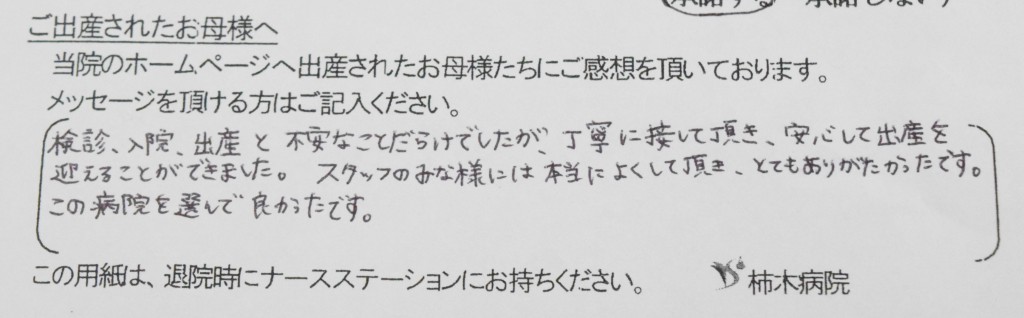 承諾する 承諾しない)
ご出産されたお母様へ
当院のホームページへ出産されたお母様たちにご感想を頂いております。
メッセージを頂ける方はご記入ください。
検診、入院、出産と不安なことだらけでしたが、丁寧に接して頂き、安心して出産を
迎えることができました。 スタッフのみな様には本当によくして頂き、とてもありがたかったです。
この病院を選んで良かったです。
この用紙は、退院時にナースステーションにお持ちください。 柿木病院